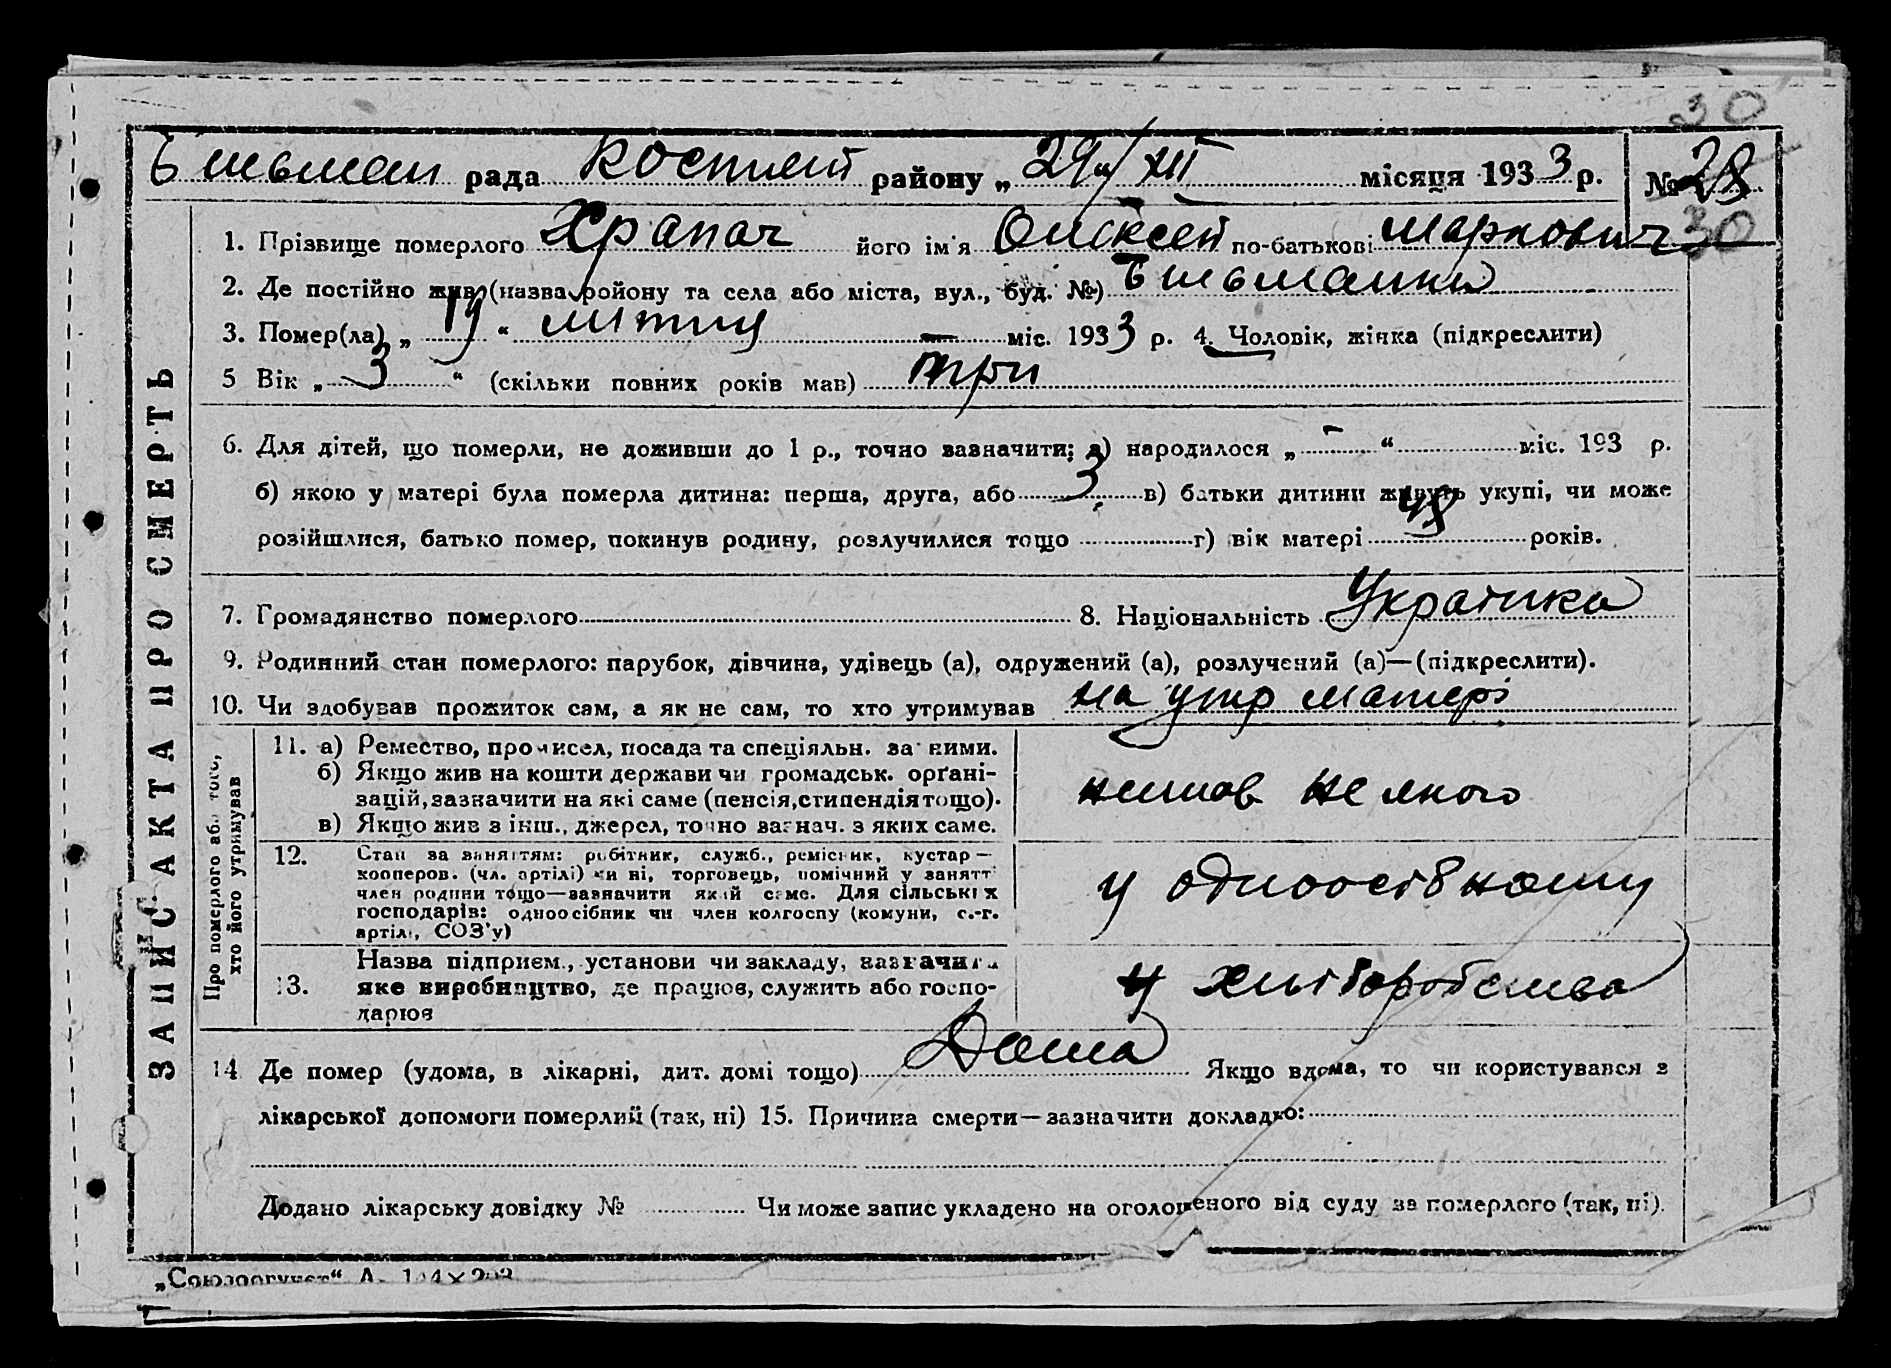 30
рада Костянт району „ 29 “/XII місяця 1933 р. № 28
30
1. Прізвище померлого Храпач його ім'я Олєксей по-батькові Маркович
2. Де постійно жив (назва ройону та села або міста, вул., буд. №)
3. Помер(ла) „ 19 “ міс. 1933 р. 4. Чоловік, жінка (підкреслити)
5 Вік „ 3 “ (скільки повних років мав) три
6. Для дітей, що померли, не доживши до 1 р., точно зазначити: а) народилося „ – “ міс. 193 р.
б) якою у матері була померла дитина: перша, друга, або 3 в) батьки дитини живуть укупі, чи може
розійшлися, батько помер, покинув родину, розлучилися тощо г) вік матері 48 років.
7. Громадянство померлого 8. Національність
9. Родинний стан померлого: парубок, дівчина, удівець (а), одружений (а), розлучений (а)—(підкреслити).
10. Чи здобував прожиток сам, а як не сам, то хто утримував на утр матері
ЗАПИС АКТА ПРО СМЕРТЬ
Про померлого або того,
хто його утримував
11. а) Ремество, промисел, посада та спеціяльн. за ними.
б) Якщо жив на кошти держави чи громадськ. орґані-
зацій, зазначити на які саме (пенсія, стипендія тощо).
в) Якщо жив з інш., джерел, точно зазнач. з яких саме.
12. Стан за заняттям: робітник, служб., ремісник, кустар—
кооперов. (чл. артілі) чи ні, торговець, помічний у занятті
член родини тощо—зазначити який саме. Для сільських
господарів: одноосібник чи член колгоспу (комуни, с.-г.
артілі, СОЗ'у)
у
13. Назва підприєм., установи чи закладу, зазначити
яке виробництво, де працюв, служить або госпо-
дарюв
у
14 Де помер (удома, в лікарні, дит. домі тощо) Дома Якщо вдома, то чи користувався з
лікарської допомоги померлий (так, ні) 15. Причина смерти—зазначити докладно:
Додано лікарську довідку № Чи може запис укладено на оголошеного від суду за померлого (так, ні).